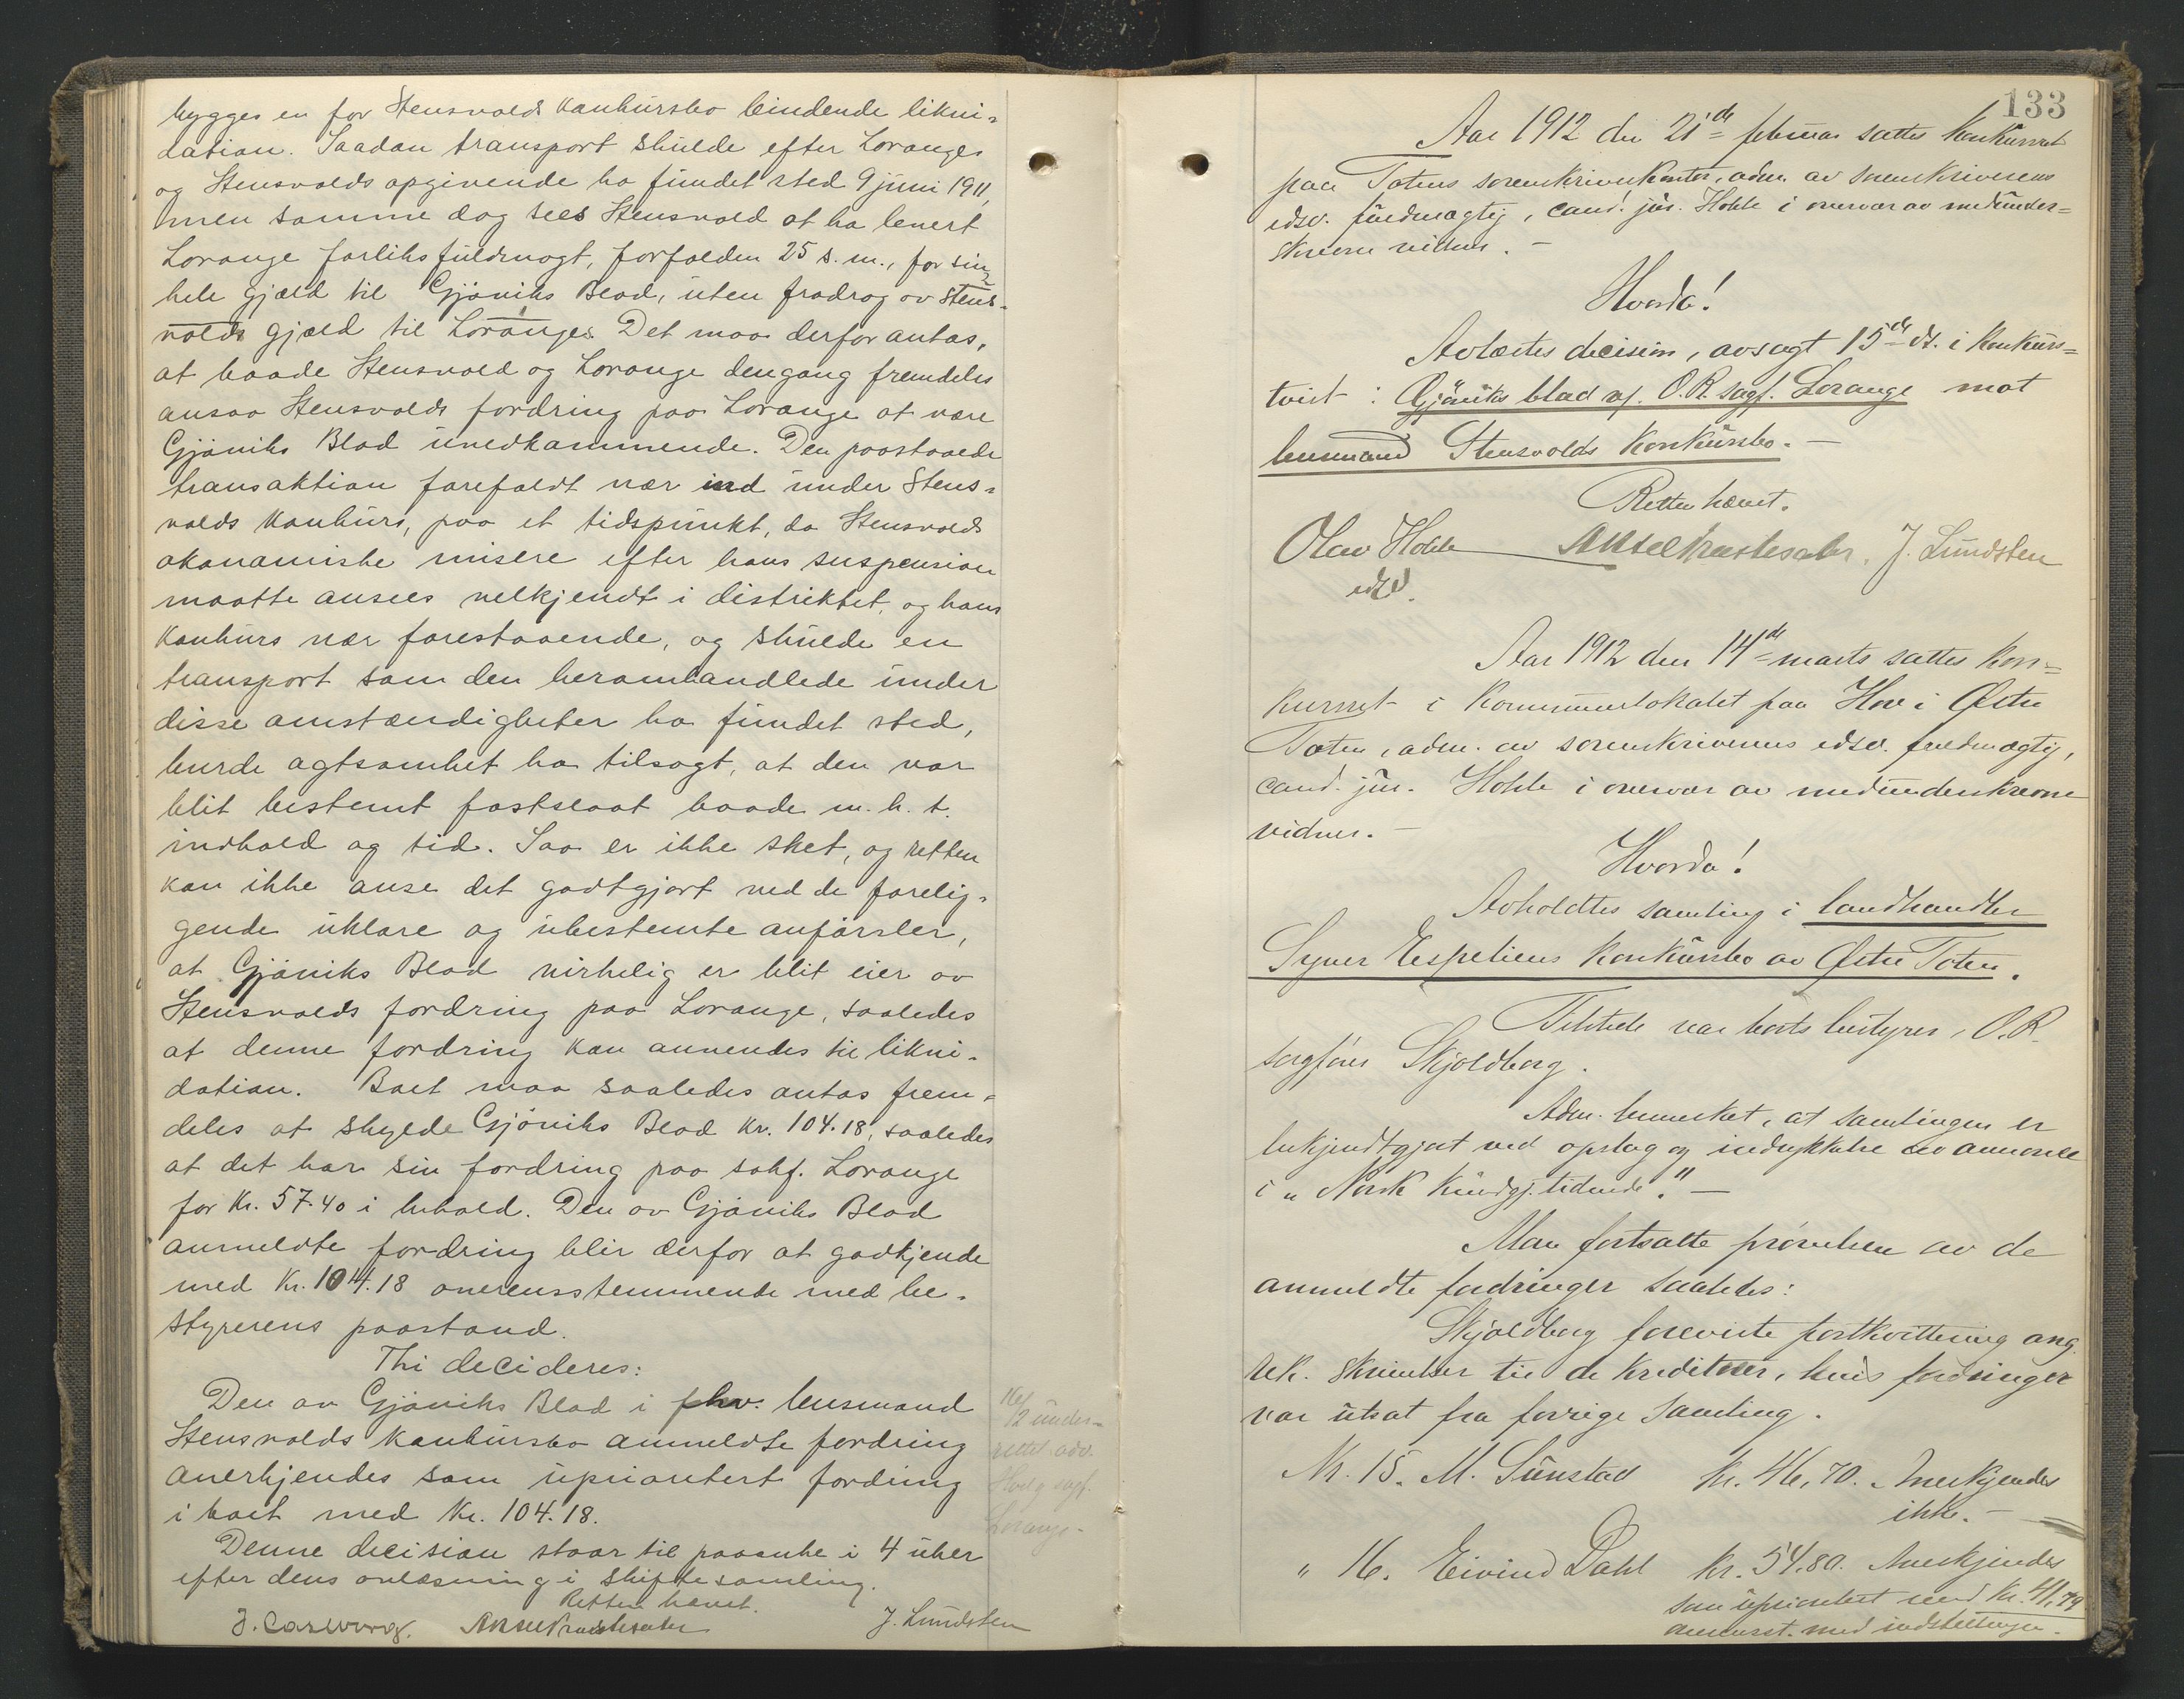 bygges en for Stensvolds konkursbo bindende likvi-
dation. Saadan transport skulde efter Loranges
og Stensvolds opgivende ha fundet sted 9 juni 1911,
men samme dag sees Stensvold at ha levert
Lorange forliksfuldmagt, forfalden 25 s.m., for sin
hele gjæld til Gjøviks Blad, uten fradrag av Stens-
volds gjæld til Loranges. Det maa derfor antas,
at baade Stensvold og Lorange dengang fremdeles
ansaa Stensvolds fordring paa Lorange at være
Gjøviks Blad uvedkommende. Den paastaaede
transaktion forefaldt nær ind under Stens-
volds konkurs, paa et tidspunkt, da Stensvolds
økonomiske misere efter hans suspension
maatte ansees velkjendt i distriktet, og hans
konkurs nær forestaaende, og skulde en
transport som den heromhandlede under
disse omstændigheter ha fundet sted,
burde agtsomhet ha tilsagt, at den var
blit bestemt fastslaat baade m.h.t.
indhold og tid. Saa er ikke sket, og retten
kan ikke anse det godtgjort ved de forelig-
gende uklare og ubestemte anførsler,
at Gjøviks Blad virkelig er blit eier av
Stensvolds fordring paa Lorange, saaledes
at denne fordring kan anvendes til likvi-
dation. Boet maa saaledes antas frem-
deles at skylde Gjøviks Blad kr. 104.18, saaledes
at det har sin fordring paa sakf. Lorange
for kr. 57.40 i behold. Den av Gjøviks Blad
anmeldte fordring blir derfor at godkjende
med kr. 104.18 overensstemmende med be-
styrerens paastand.
Thi decideres:
Den av Gjøviks Blad i fhv. lensmand
Stensvolds konkursbo anmeldte fordring
anerkjendes som uprioritert fordring
i boet med kr. 104.18.
Denne decision staar til paaanke i 4 uker
efter dens avlæsning i skiftesamling.
Retten hævet.
J. Carlborg. J. Lundsten
12 under-
rettet adv.
Lorange.
133
Aar 1912 den 21de februar sattes konkursret
paa Totens sorenskriverkontor, adm. av sorenskriverens
edsv. fuldmægtig, cand. jur. Hohle i overvær av medunder-
skrevne vidner. -
Hvorda!
Avlæstes decision, avsagt 15de ds. i konkurs-
tvist: Gjøviks blad v/ O.R. sagf. Lorange mot
lensmand Stensvolds konkursbo. -
Retten hævet.
Olav Hohle J. Lundsten
edsv.
Aar 1912 den 14de marts sattes kon-
kursret i Kommunelokalet paa Hov i Østre
Toten, adm. av sorenskriverens edsv. fuldmægtig,
cand. jur. Hohle i overvær av medunderskrevne
vidner. -
Hvorda!
Avholdtes samling i landhandler
Syver Espeliens konkursbo av Østre Toten.
Tilstede var boets bestyrer, O.R.
sagfører Skjoldborg.
Adm. bemerket, at samlingen er
bekjendtgjort ved opslag og indrykkelse av annonce
i "Norsk Kundgj. tidende". -
Man fortsatte prøvelsen av de
anmeldte fordringer saaledes:
Skjoldborg foreviste postkvittering ang.
rek. skrivelser til de kreditorer, hvis fordringer
var utsat fra forrige samling.
Nr. 15. M. Sunstad kr. 46,70. Anerkjendes
ikke. -
" 16. Eivind Dahl kr. 54,80. Anerkjendes
som uprioritert med kr. 41,79
overensst. med indstillingen.